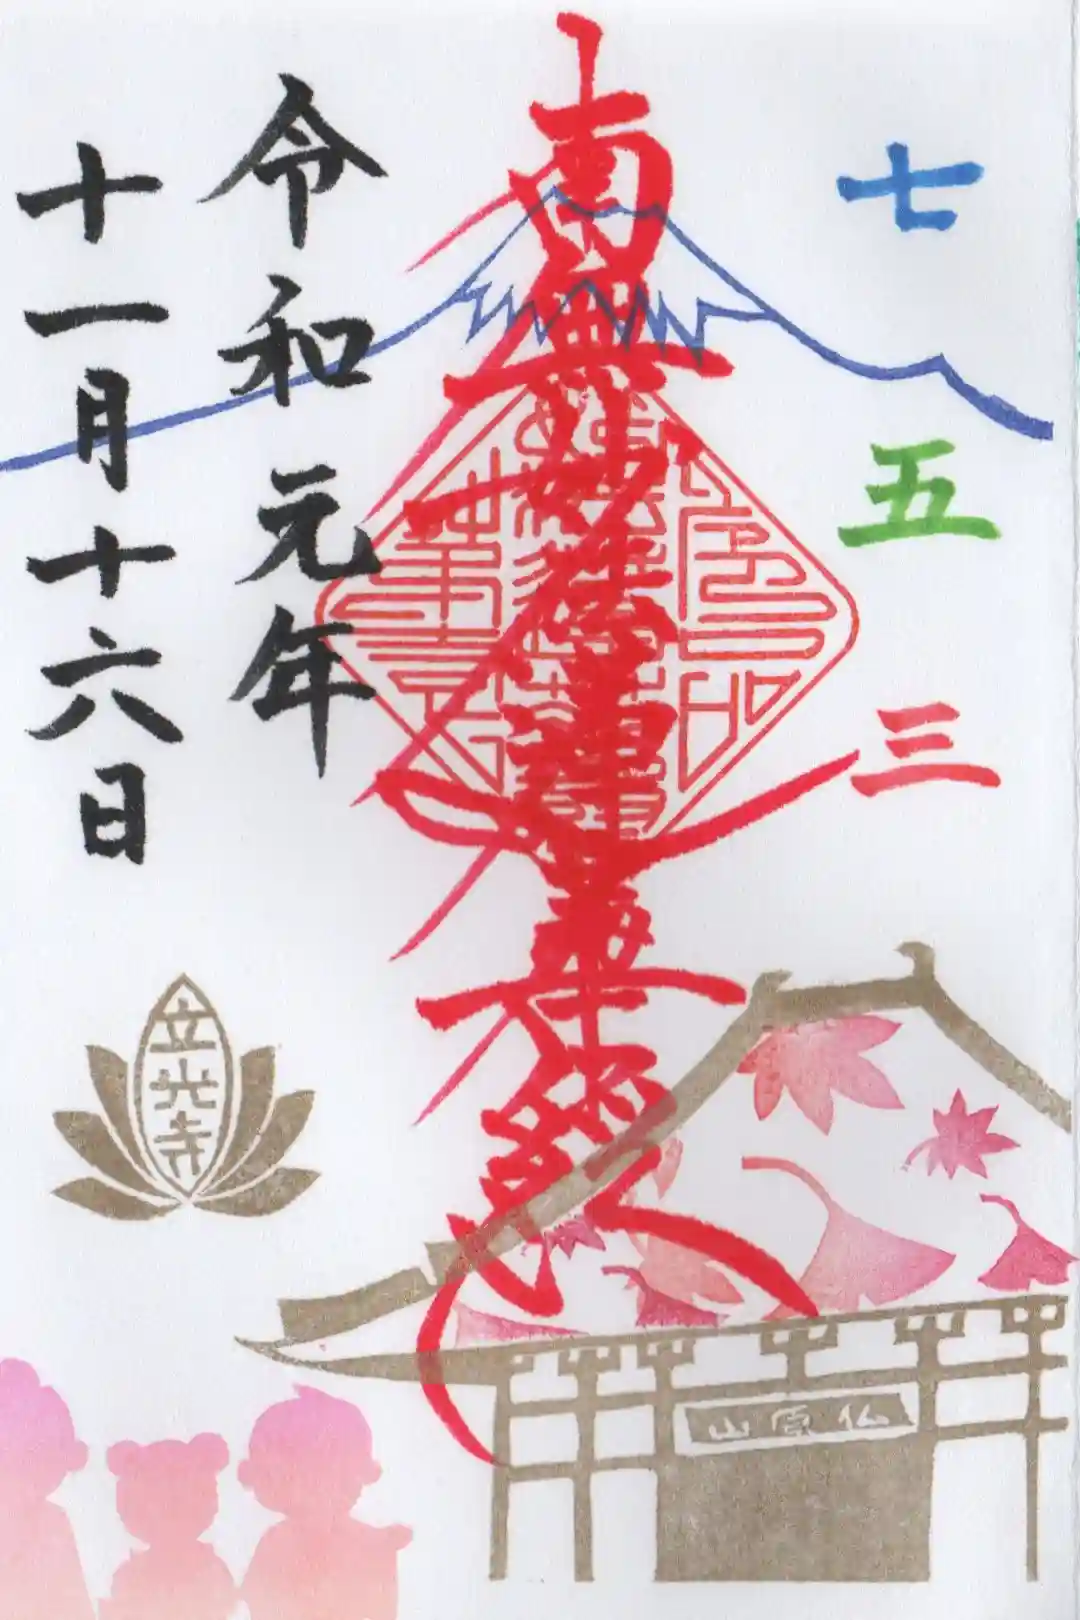 七 五 三
南無妙法蓮華経
令和元年
十一月十六日
立光寺
仏原山